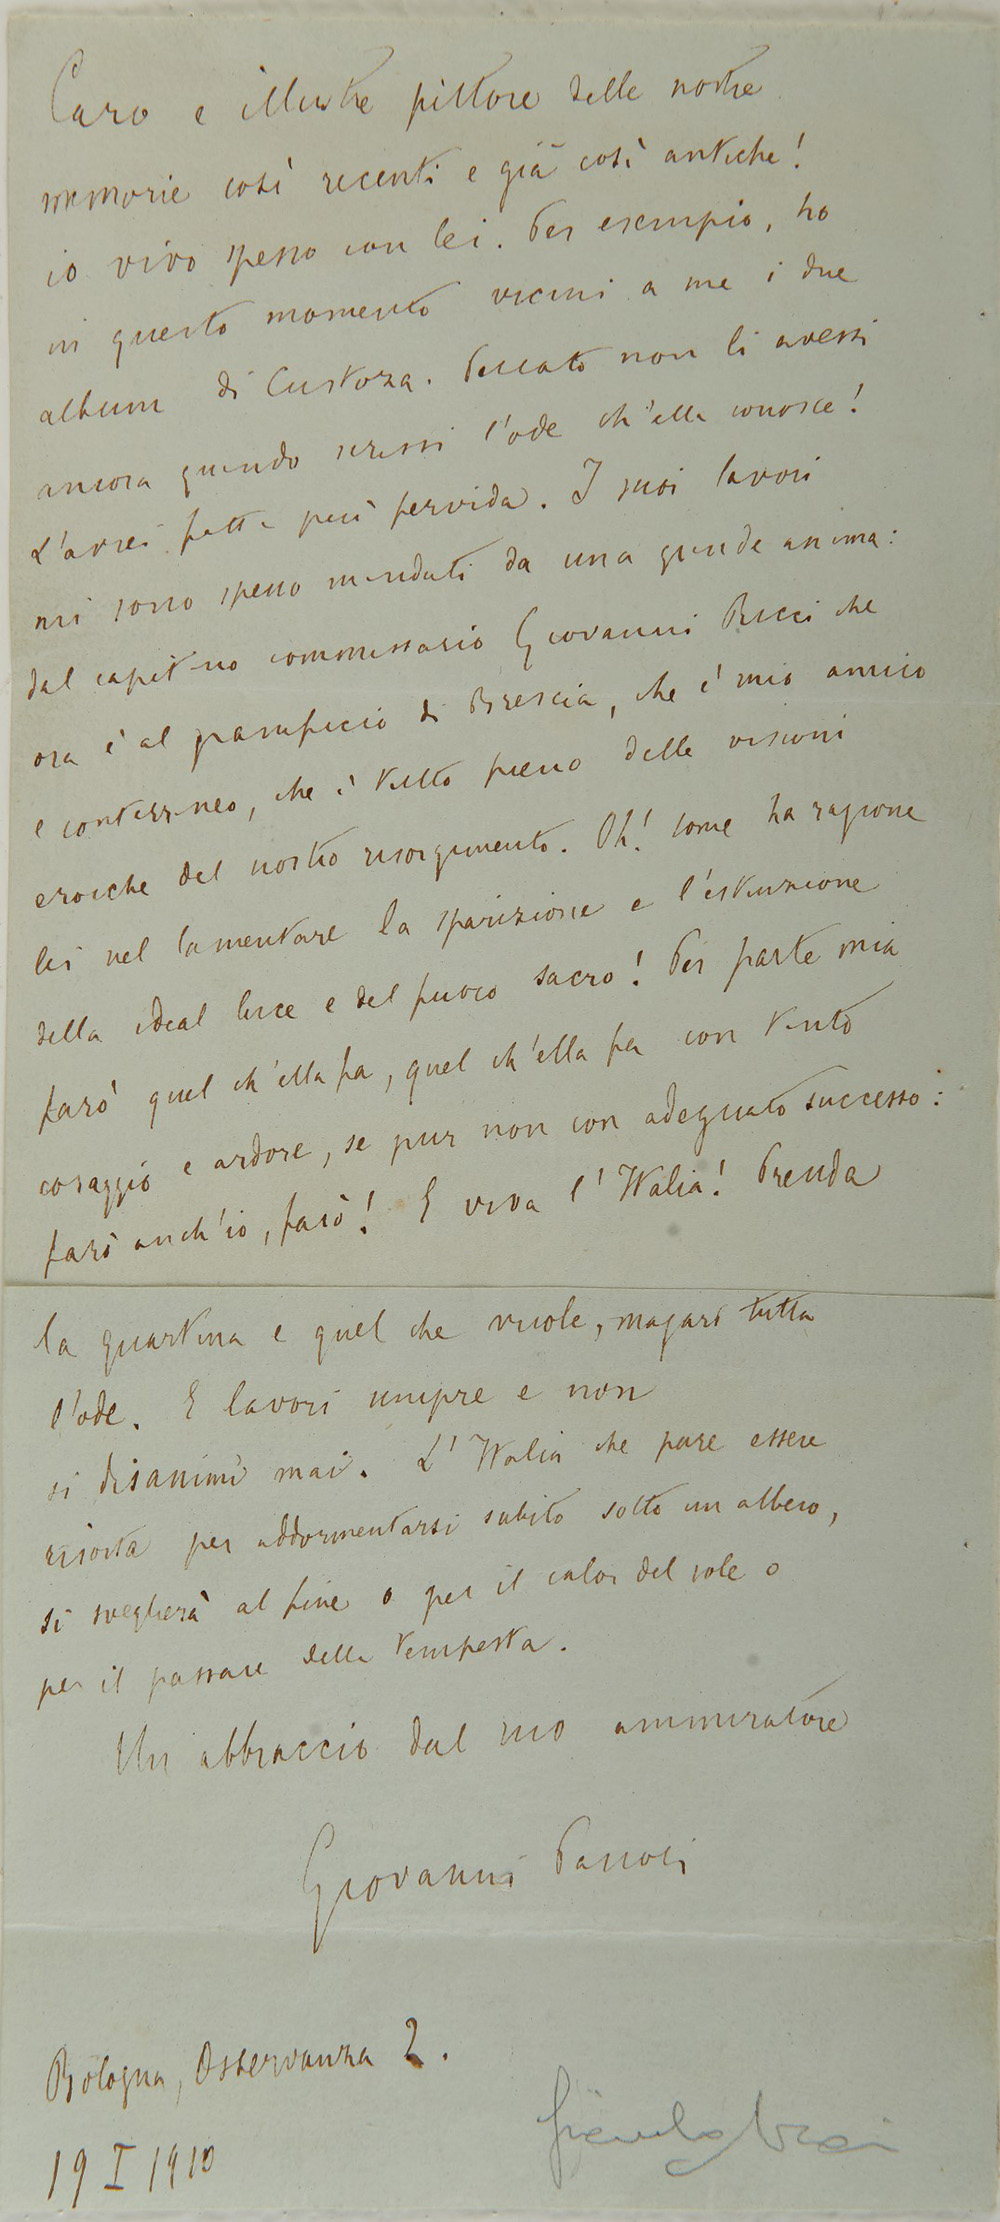 Caro e illustre pittore delle nostre
memorie così recenti e già così antiche!
io vivo spesso con lei. Per esempio, ho
in questo momento vicini a me i due
album di Custoza. Peccato non li avessi
ancora quando scrissi l'ode ch'ella conosce!
L'avrei fatta più fervida. I suoi lavori
mi sono spesso mandati da una grande anima:
dal capitano commissario Giovanni Ricci che
ora è al panificio di Brescia, che è mio amico
e conterraneo, che è tutto pieno delle visioni
eroiche del nostro risorgimento. Oh! come ha ragione
lei nel lamentare la sparizione e l'estinzione
della ideal luce e del fuoco sacro! Per parte mia
farò quel ch'ella fa, quel ch'ella fa con tanto
coraggio e ardore, se pur non con adeguato successo:
farò anch'io, farò! E viva l'Italia! Prenda
la quartina e quel che vuole, magari tutta
l'ode. E lavori sempre e non
si disanimi mai. L'Italia che pare essere
risorta per addormentarsi subito sotto un albero,
si sveglierà al fine o per il calor del sole o
per il passare della tempesta.
Un abbraccio dal suo ammiratore
Giovanni Pascoli
Bologna, Osservanza 2.
19 I 1910